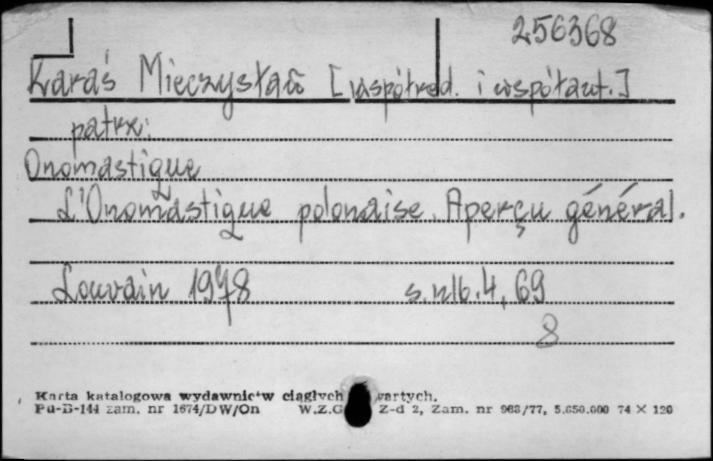 256368
Karaś Mieczysław [współred. i współaut.]
patrz:
Onomastique
L'Onomastique polonaise. Aperçu général.
Louvain 1978 s. nlb. 4, 69
8
Karta katalogowa wydawnictw ciągłych zwartych.
Pu-B-144 zam. nr 1674/DW/On W.Z.G. Z-d 2, Zam. nr 963/77, 5.650.000 74 × 120